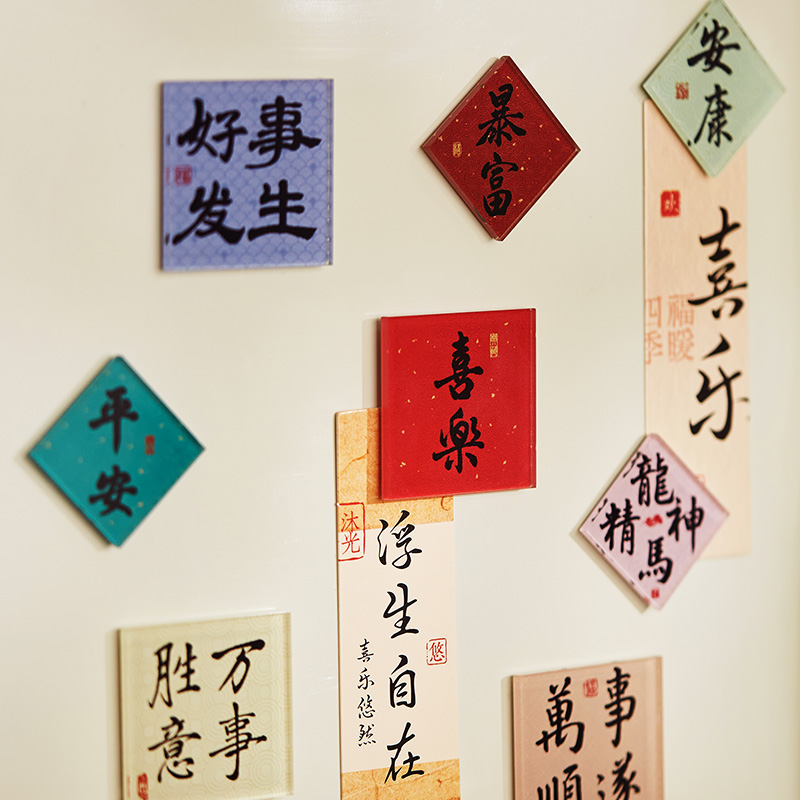 好事
发生
暴富
安康
欢
喜乐
福暖
四季
平安
喜樂
龍馬
精神
沐光
浮生自在
悠
喜乐悠然
万事
胜意
萬事
順遂